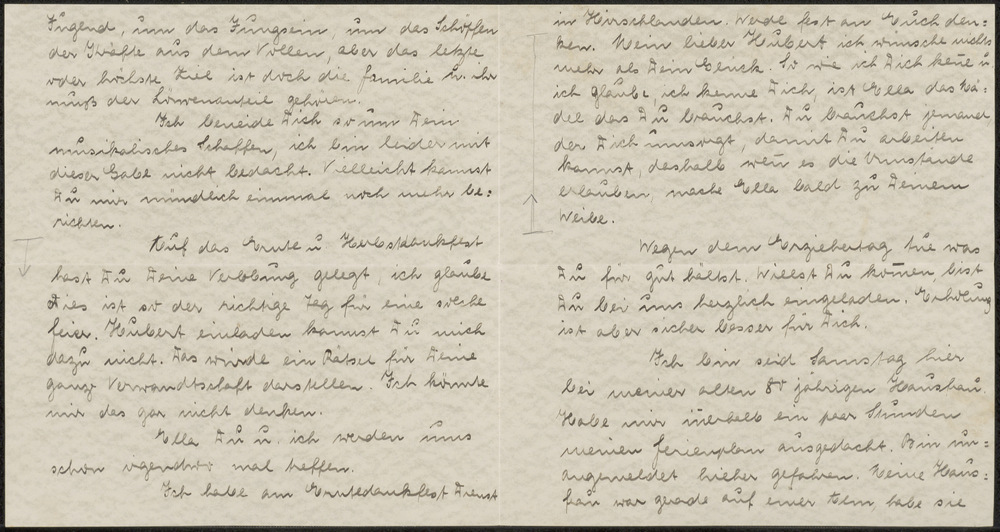 Jugend, um das Jungsein, um das Schöpfen
der Kräfte aus dem Vollen, aber das letzte
oder höchste Ziel ist doch die Familie u. ihr
muß der Löwenanteil gehören.
Ich beneide Dich so um Dein
musikalisches Schaffen, ich bin leider mit
dieser Gabe nicht bedacht. Vielleicht kannst
Du mir mündlich einmal noch mehr be=
richten.
Auf das Ernte u. Herbstdankfest
hast Du Deine Verlobung gelegt, ich glaube
dies ist so der richtige Tag für eine solche
Feier. Hubert einladen kannst Du mich
dazu nicht. Das würde ein Rätsel für Deine
ganze Verwandtschaft darstellen. Ich könnte
mir das gar nicht denken.
Ella Du u. ich werden uns
schon irgendwo mal treffen.
Ich habe am Erntedankfest Dienst
in Hirschlanden. Werde fest an Euch den=
ken. Mein lieber Hubert ich wünsche nichts
mehr als Dein Glück. So wie ich Dich kene u
ich glaube, ich kenne Dich, ist Ella das Mä=
del das Du brauchst. Du brauchst jemand
der Dich umsorgt, damit Du arbeiten
kannst, deshalb wen es die Umstände
erlauben, mache Ella bald zu Deinem
Weibe.
Wegen dem Erziehertag tue was
Du für gut hältst. Willst Du komen bist
Du bei uns herzlich eingeladen. Erholung
ist aber sicher besser für Dich.
Ich bin seid Samstag hier
bei meiner alten 80 jährigen Hausfrau.
Habe mir inerhalb ein paar Stunden
meinen Ferienplan ausgedacht. Bin un=
angemeldet hieher gefahren. Meine Haus=
frau war gerade auf einer habe sie